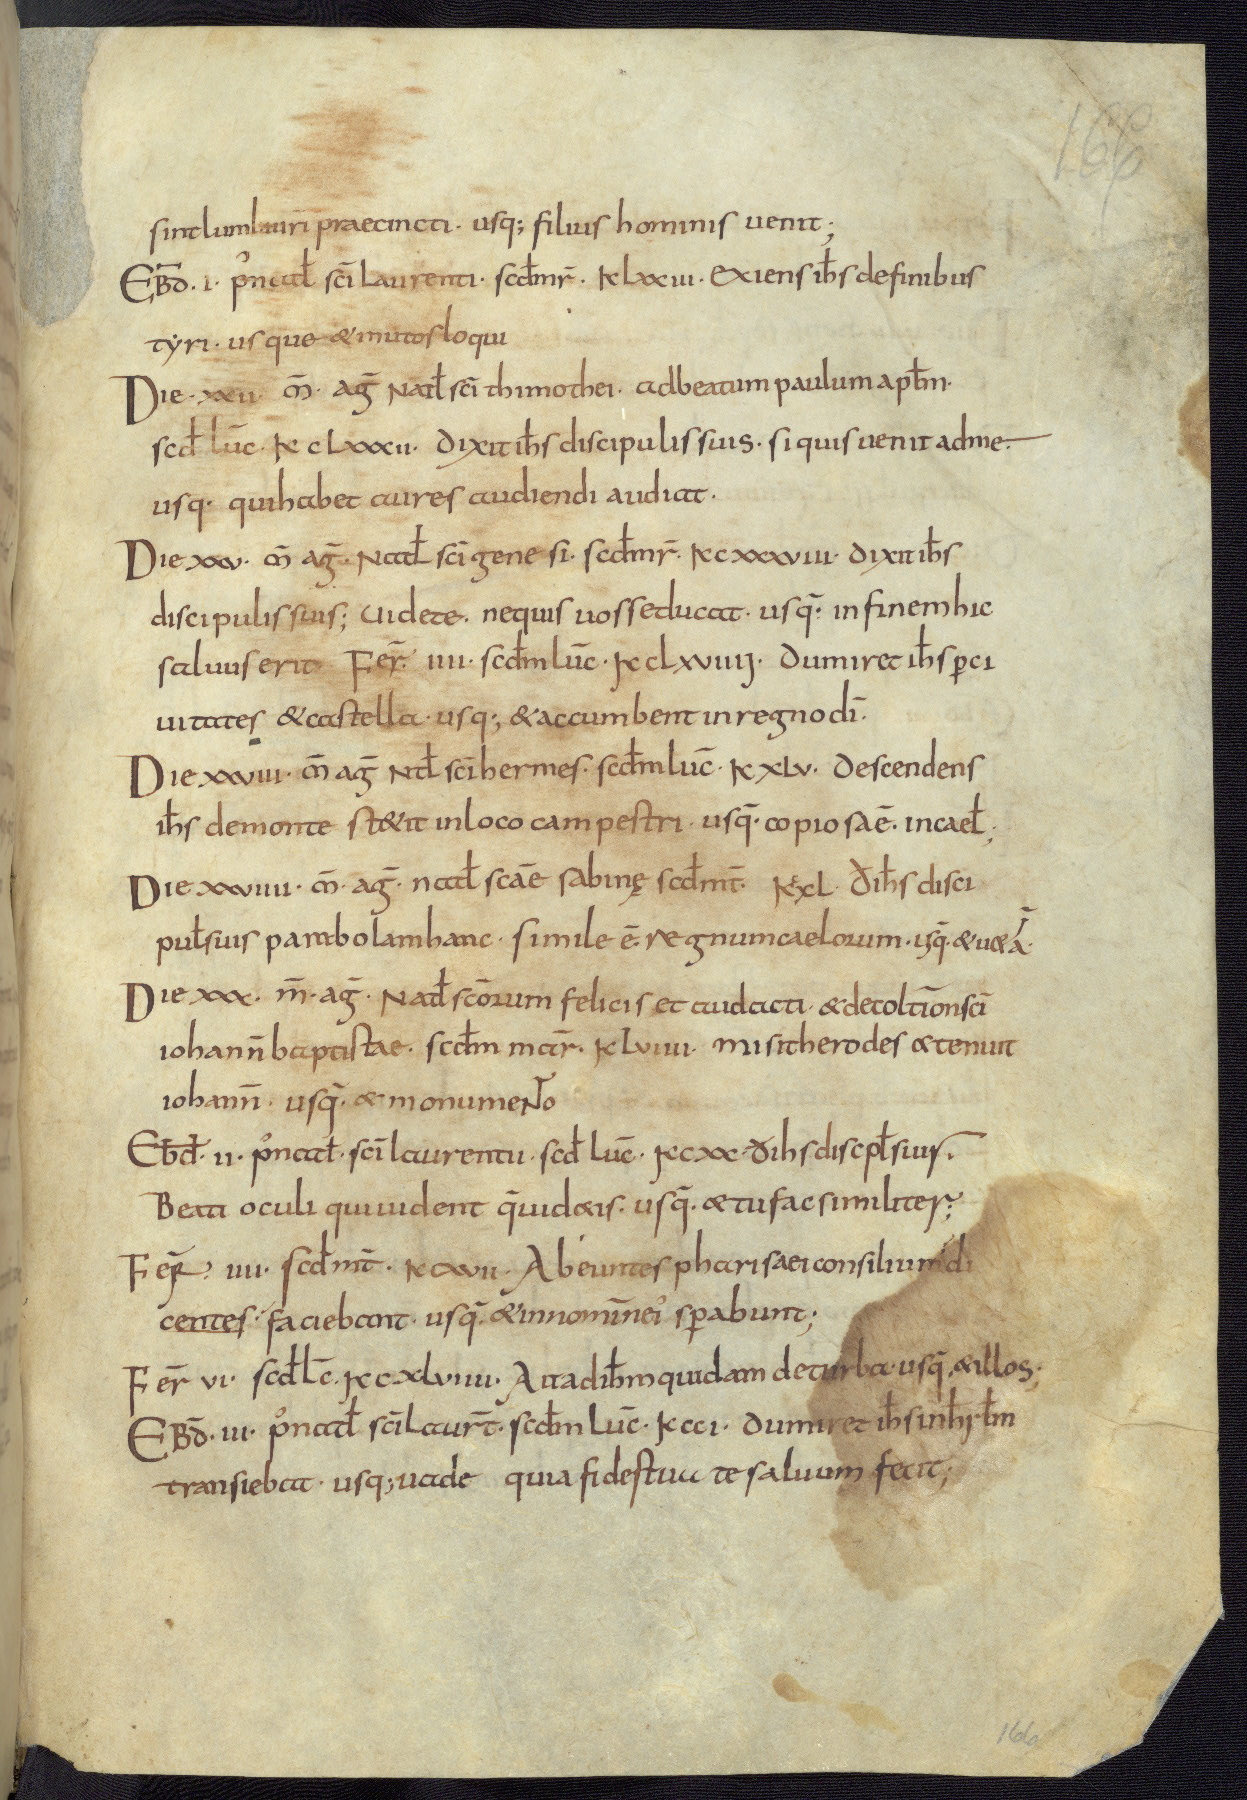 166
sint lumb uiri praecincti · usq; filius hominis uenit;
EBD̄ · i · p̊ natal̄ sc̄i laurenti · scd̄ mr̄ · K lxxiii · exiens ih̄s de finibus
tyri · usque & mutos loqui
Die · xxii · m̄ · ag̅ Natl̄ sc̄i thimothei · ad beatum paulum aptl̄m ·
scd̄ lūc · K clxxxii · dixit ih̄s discipulis suis · si quis uenit ad me ·
usq · qui habet aures audiendi audiat ·
Die xxv · m̄ ag̅ · Natal̄ sc̄i genesi · scd̄ mr̄ · K cxxxviii · dixit ih̄s
discipulis suis; Uidete · ne quis uos seducat · usq̄ · in finem hic
saluus erit Fer̄ · iiii · scd̄m lūc · K clxviiij · dum iret ih̄s ꝑ ci
uitates & castella · usq; & accumbent in regno dī ·
Die xxviii · m̄ ag̅ Ntl̄ sc̄i hermes · scd̄m lūc · K xlv · descendens
ih̄s de monte st&it in loco campestri · usq̄ · copiosa ē · in cael̄;
Die xxviiii · m̄ · ag̅ · natal̄ scāe sabinę scd̄ mt̄ · K xl · d̄ ih̄s disci
pul̄ suis parabolam hanc · simile ē · regnum caelorum · usq̄ · & u&ā ·
Die xxx · m̄ · ag̅ · Natl̄ scōrum felicis et audacti · & decoltīon sc̄i
iohann̄ baptistae · scd̄m mar̄ · K lviiii · misit herodes & tenuit
iohann̄ · usq̄ · & monumento
Ebd̄ · ii · p̊ natal̄ · sc̄i laurentii · scd̄ lūc · K cxx · d̄ ih̄s discipl̄ suis ·
Beati oculi qui uident q̄ uid&is · usq̄ · & tu fac similiter;
Fer̄ · iiii · scd̄ mt̄ · K cxvii · Abeuntes pharisaei consilium di
centes · faciebant · usq̄ · & in nomīne ei' sꝑabunt;
Fer̄ vi · scd̄ lc̄ · K cxlviiii · Ait ad ih̄m quidam de turba · usq̄ · & illos;
EBD̄ · iii · p̊ natal̄ sc̄i laur̄t · scd̄m lūc · K cci · dum iret ih̄s in hirl̄m
transiebat · usq; uade quia fides tua te saluum fecit;
166